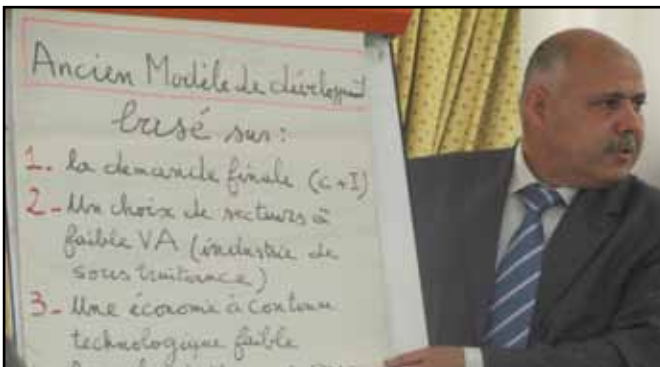 Ancien Modèle de dévelopmt
basé sur :
1. la demande finale (C+I)
2 - Un choix de secteurs à
faible VA (industrie de
sous traitance)
3 - Une économie à contenu
technologique faible